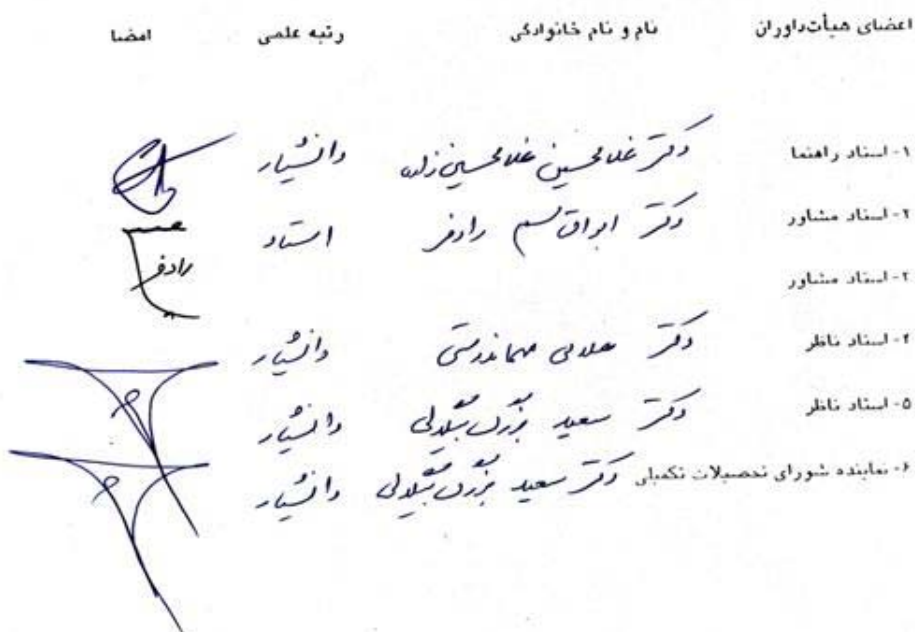 اعضای هیأت‌داوران نام و نام خانوادگی رتبه علمی امضا
۱- استاد راهنما دکتر غلامحسین غلامحسین زاده دانشیار
۲- استاد مشاور دکتر ابوالقاسم رادفر استاد رادفر
۳- استاد مشاور
۴- استاد ناظر دکتر دانشیار
۵- استاد ناظر دکتر سعید بزرگ بیگدلی دانشیار
۶- نماینده شورای تحصیلات تکمیلی دکتر سعید بزرگ بیگدلی دانشیار